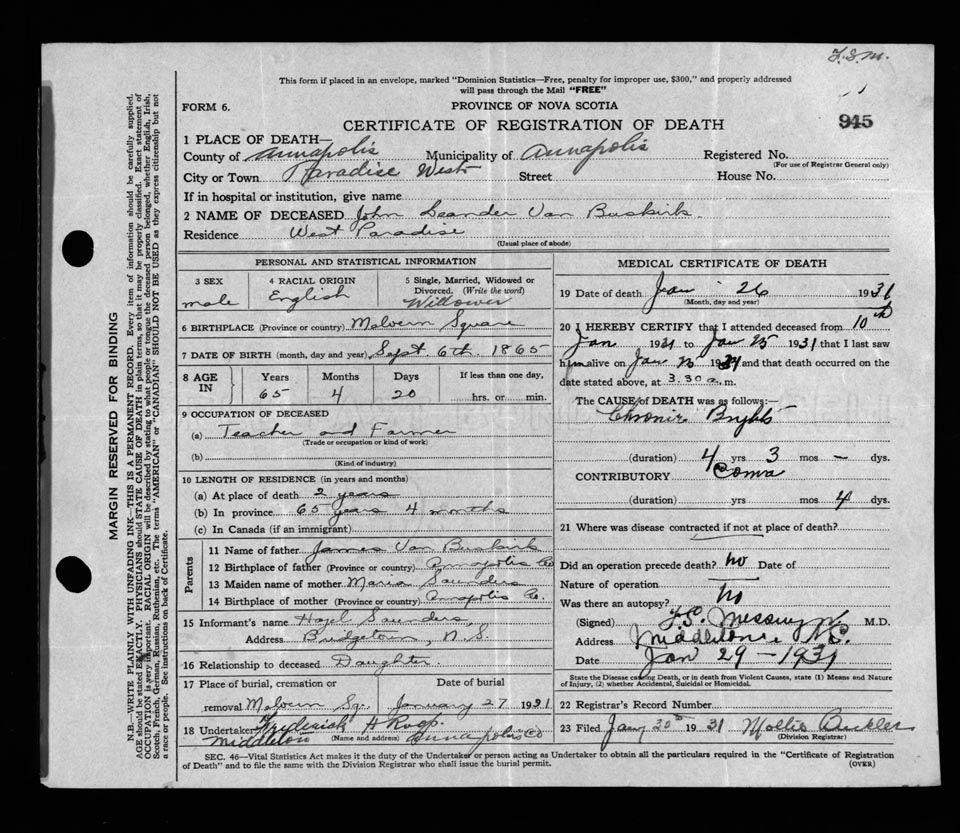 F.S.M.
This form if placed in an envelope, marked "Dominion Statistics—Free, penalty for improper use, $300," and properly addressed
will pass through the Mail "FREE"
FORM 6.
PROVINCE OF NOVA SCOTIA
CERTIFICATE OF REGISTRATION OF DEATH
945
1 PLACE OF DEATH—
County of Annapolis Municipality of Annapolis Registered No.
(For use of Registrar General only)
City or Town Paradise West Street House No.
If in hospital or institution, give name
2 NAME OF DECEASED John Leander Van Buskirk.
Residence West Paradise
(Usual place of abode)
PERSONAL AND STATISTICAL INFORMATION
3 SEX male
4 RACIAL ORIGIN English
5 Single, Married, Widowed or Divorced. (Write the word) Widower
6 BIRTHPLACE (Province or country) Melvern Square
7 DATE OF BIRTH (month, day and year) Sept. 6th. 1865
8 AGE IN Years Months Days If less than one day,
65 4 20 hrs. or min.
9 OCCUPATION OF DECEASED
(a) Teacher and Farmer
(Trade or occupation or kind of work)
(b)
(Kind of industry)
10 LENGTH OF RESIDENCE (in years and months)
(a) At place of death 2 years
(b) In province 65 years 4 months
(c) In Canada (if an immigrant)
Parents
11 Name of father James Van Buskirk
12 Birthplace of father (Province or country) Annapolis Co
13 Maiden name of mother Maria Saunders
14 Birthplace of mother (Province or country) Annapolis Co.
15 Informant's name Hazel Saunders,
Address Bridgetown, N.S.
16 Relationship to deceased Daughter.
17 Place of burial, cremation or Date of burial
removal Melvern Sq. January 27 1931
18 Undertaker Frederick A Roop.
Middleton (Name and address) Annapolis Co
MEDICAL CERTIFICATE OF DEATH
19 Date of death Jan 26 1931
(Month, day and year)
20 I HEREBY CERTIFY that I attended deceased from 10th
Jan 1931 to Jan 25 1931 that I last saw
him alive on Jan 25 1931 and that death occurred on the
date stated above, at 3.30 a. m.
The CAUSE of DEATH was as follows:
Chronic Brights
(duration) 4 yrs 3 mos — dys.
CONTRIBUTORY Coma
(duration) yrs mos 4 dys.
21 Where was disease contracted if not at place of death?
Did an operation precede death? no Date of
Nature of operation
Was there an autopsy? no
(Signed) M.D.
Address Middleton, N.S.
Date Jan 29 - 1931
State the Disease causing Death, or in death from Violent Causes, state (1) Means and Nature
of Injury, (2) whether Accidental, Suicidal or Homicidal.
22 Registrar's Record Number
23 Filed Jan 30th 1931 Mollie Buckler
(Division Registrar)
SEC. 46—Vital Statistics Act makes it the duty of the Undertaker or person acting as Undertaker to obtain all the particulars required in the "Certificate of Registration
of Death" and to file the same with the Division Registrar who shall issue the burial permit.
(OVER)
MARGIN RESERVED FOR BINDING
N.B.—WRITE PLAINLY WITH UNFADING INK—THIS IS A PERMANENT RECORD. Every item of information should be carefully supplied.
AGE should be stated EXACTLY. PHYSICIANS should STATE CAUSE OF DEATH in plain terms, so that it may be properly classified. Exact statement of
OCCUPATION is very important. RACIAL ORIGIN will be described by stating to what people or tongue the deceased person belonged, whether English, Irish,
Scotch, French, German, Russian, Ruthenian, etc. The terms "AMERICAN" or "CANADIAN" SHOULD NOT BE USED as they express citizenship but not
a race or people. See instructions on back of Certificate.